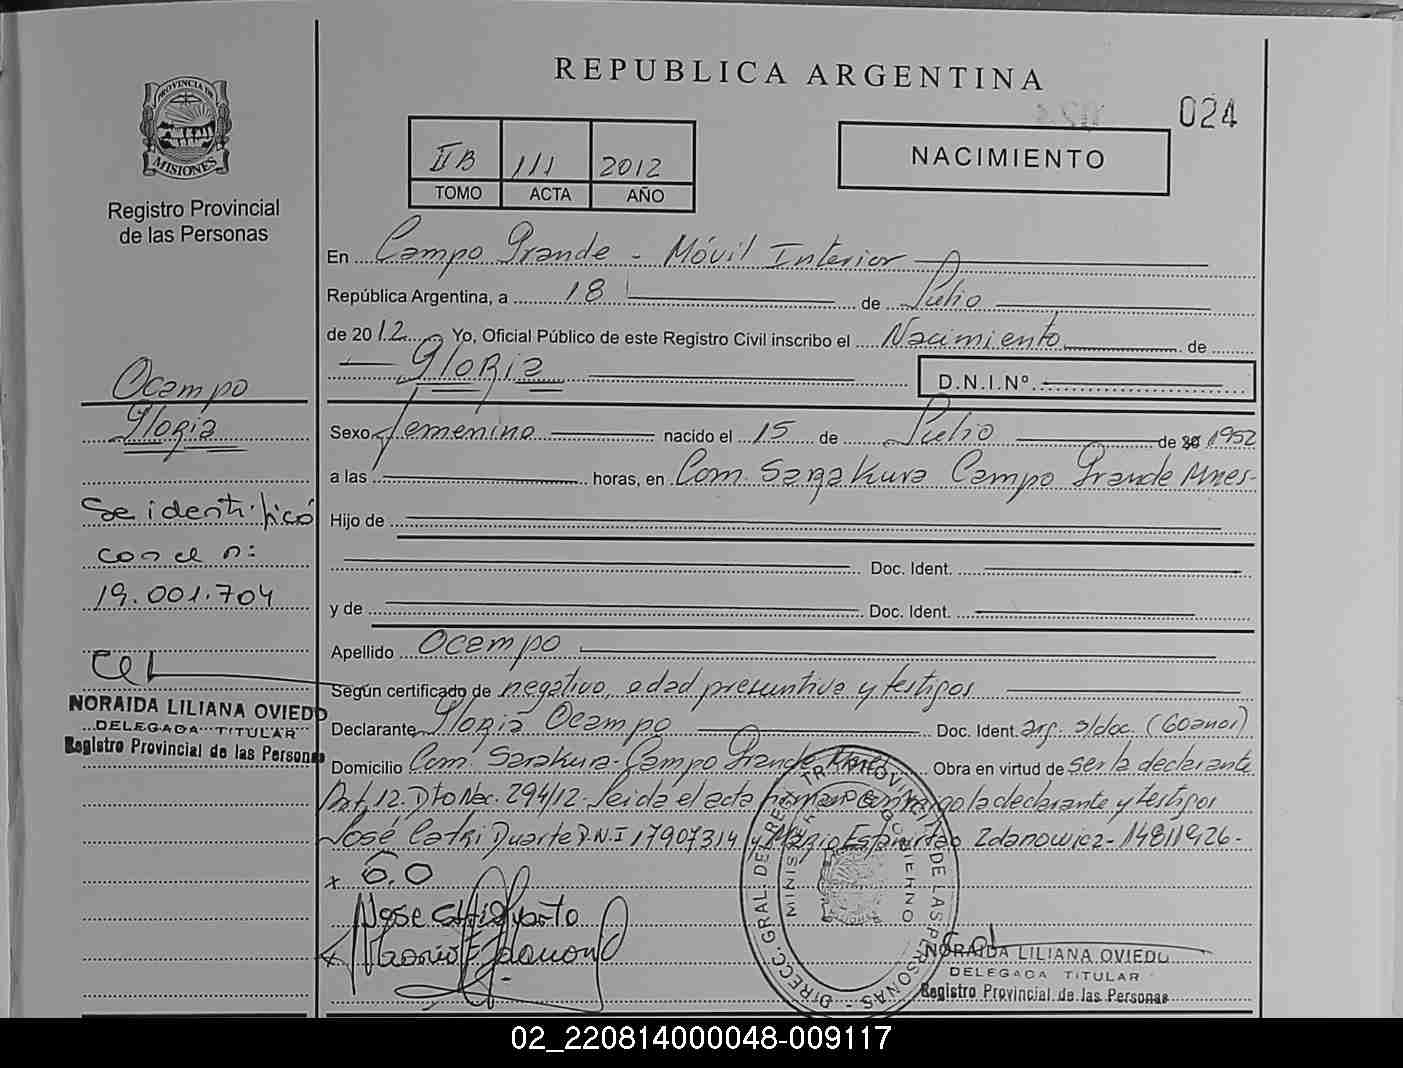 REPUBLICA ARGENTINA
024
PROVINCIA DE
MISIONES
Registro Provincial
de las Personas
II B 111 2012
TOMO ACTA AÑO
NACIMIENTO
En Campo Grande - Móvil Interior
República Argentina, a 18 de Julio
de 2012 Yo, Oficial Público de este Registro Civil inscribo el Nacimiento de
Gloria
D.N.I.Nº
Ocampo
Gloria
Se identificó
con el n:
19.001.704
NORAIDA LILIANA OVIEDO
DELEGADA TITULAR
Registro Provincial de las Personas
Sexo femenino nacido el 15 de Julio de 1952
a las horas, en Com. Sarakura Campo Grande Mnes-
Hijo de
Doc. Ident.
y de Doc. Ident.
Apellido Ocampo
Según certificado de negativo, edad presuntiva y testigos
Declarante Gloria Ocampo Doc. Ident. arg. s/doc. (60 anos)
Domicilio Com. Sarakura- Campo Grande Mnes Obra en virtud de ser la declarante
Art, 12. Dto Nac. 294/12- Leida el acta firman conmigo la declarante y testigos
José Catri Duarte D.N.I 17907314 y Mario Estanislao Zdanowicz - 14811926-
x G.O
DIRECC. GRAL. DEL REGISTRO PROVINCIAL DE LAS PERSONAS
MINISTERIO DE GOBIERNO
NORAIDA LILIANA OVIEDO
DELEGADA TITULAR
Registro Provincial de las Personas
02_220814000048-009117